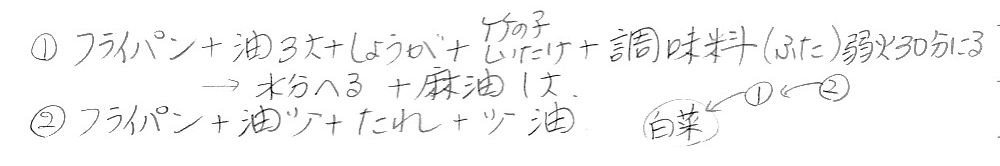 ① フライパン+油3大+しょうが+竹の子 しいたけ+調味料(ふた)弱火30分にる
→ 水分へる +麻油1大.
② フライパン+油少+たれ+少油 白菜 ← ① ← ②